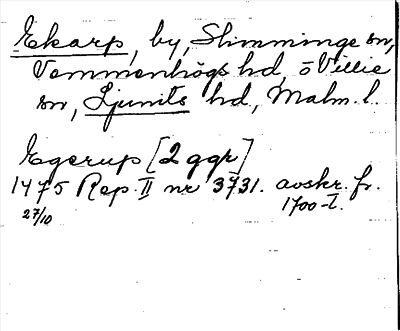 Ekarp, by, Slimminge sn,
Vemmenhögs hd, o Villie
sn, Ljunits hd, Malm. l.
Egerup [2 ggr]
1475 Rep. II nr 3731. avskr. fr.
27/10 1700-t.